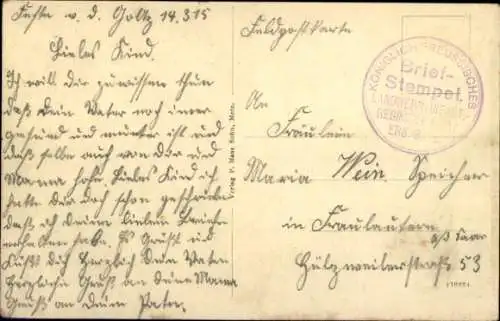 Feste v. d. Goltz 14.3.15
Liebes Kind.
Ich will dir zu wissen thun
daß Dein Vater noch imer
gesund und munter ist und
daß selbe auch von dir und
Mamma hofe. Liebes Kind ich
hatte dir doch schon geschrieben
daß ich deine lieben Briefe
erhalten habe. Es Grüßt und
Küßt dich Herzlich Dein Vater
Herzliche Gruß an deine Mama
Gruß an dein Pater.
Verlag P. Mans Sohn, Metz.
Feldpostkarte
KÖNIGLICH PREUSSISCHES
Brief-
Stempel.
LANDWEHR
An
Fräulein
Maria Wein, Speicher
in Fraulautern
a/d Saar
Hülzweilerstraße 53